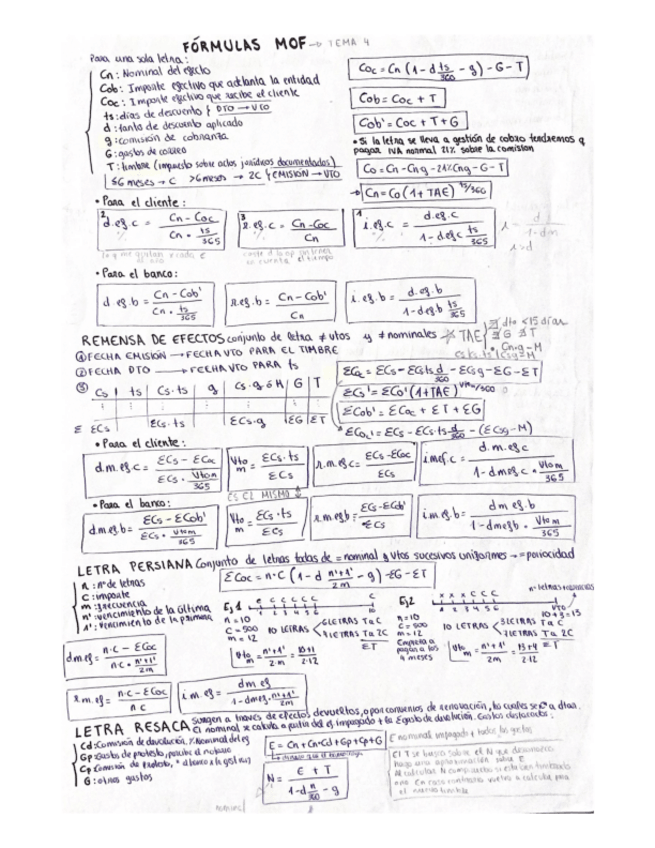 FÓRMULAS MOF → TEMA 4
Para una sola letra:
Cn: Nominal del efecto
Cob: Importe efectivo que adelanta la entidad
Coc: Importe efectivo que recibe el cliente
ts: días de descuento } DTO → VTO
d: tanto de descuento aplicado
g: comisión de cobranza
G: gastos de correo
T: timbre (impuesto sobre actos jurídicos documentados)
≤6 meses → C >6 meses → 2C } EMISIÓN → VTO
Coc = Cn (1 - d ts/360 - g) - G - T
Cob = Coc + T
Cob' = Coc + T + G
• Si la letra se lleva a gestión de cobro tendremos q
pagar IVA normal 21% sobre la comisión
Co = Cn - Cng - 21% Cng - G - T
→ Cn = Co (1 + TAE) ts/360
• Para el cliente:
2 d.ef.c = Cn - Coc / Cn · ts/365
3 r.ef.c = Cn - Coc / Cn
1 i.ef.c = d.ef.c / 1 - d.ef.c ts/365
• Para el banco:
d.ef.b = Cn - Cob' / Cn · ts/365
r.ef.b = Cn - Cob' / Cn
i.ef.b = d.ef.b / 1 - d.ef.b ts/365
REMENSA DE EFECTOS conjunto de letra ≠ vtos y ≠ nominales
TAE dto <15 días
G T
Cn·g - M
① FECHA EMISIÓN → FECHA VTO PARA EL TIMBRE
② FECHA DTO → FECHA VTO PARA ts
③ Cs ts Cs·ts g Cs·g ó M G T
Σ ΣCs ΣCs·ts ΣCs·g ΣG ΣT
ΣCoc = ΣCs - ΣCs ts d/360 - ΣCsg - ΣG - ΣT
ΣCs' = ΣCo' (1 + TAE) vtom/360
ΣCob' = ΣCoc + ΣT + ΣG
ΣCoc' = ΣCs - ΣCs·ts d/360 - (ΣCsg - M)
• Para el cliente:
d.m.ef.c = ΣCs - ΣCoc / ΣCs · Vtom/365
Vto m = ΣCs·ts / ΣCs
r.m.ef.c = ΣCs - ΣCoc / ΣCs
i.m.ef.c = d.m.ef.c / 1 - d.m.ef.c · Vtom/365
ES EL MISMO
• Para el banco:
d.m.ef.b = ΣCs - ΣCob' / ΣCs · Vtom/365
Vto m = ΣCs·ts / ΣCs
r.m.ef.b = ΣCs - ΣCob' / ΣCs
i.m.ef.b = d.m.ef.b / 1 - d.m.ef.b · Vtom/365
LETRA PERSIANA Conjunto de letras todas de = nominal y vtos sucesivos uniformes → = periocidad
n: nº de letras
C: importe
m: frecuencia
n': vencimiento de la última
1': vencimiento de la primera
ΣCoc = n·C (1 - d n'+1'/2m - g) - ΣG - ΣT
Ej 1 C C C C C C C
1 2 3 4 5 6
n = 10
C = 500
m = 12
10 LETRAS
6 LETRAS T a C
4 LETRAS T a 2C
ΣT
Vto m = n'+1'/2·m = 10+1/2·12
Ej 2 X X X C C C
1 2 3 4 5 6
VTO
10+3=13
n = 10
C = 500
m = 12
Empieza a
pagar a los
4 meses
10 LETRAS
3 LETRAS T a C
7 LETRAS T a 2C
ΣT
Vto m = n'+1'/2m = 13+4/2·12
d.m.ef = n·C - ΣCoc / n·C · n'+1'/2m
r.m.ef = n·C - ΣCoc / n·C
i.m.ef = d.m.ef / 1 - d.m.ef · n'+1'/2m
LETRA RESACA Surgen a través de efectos devueltos, o por convenios de renovación, los cuales se a días.
El nominal se calcula a partir del ef impagado + los gastos de devolución. Gastos destacados:
Cd: Comisión de devolución. % Nominal del ef
Gp: Gastos de protesto, percibe el notario
Cp: Comisión de protesto, al banco x la gestión
G: otros gastos
E = Cn + Cn·Cd + Gp + Cp + G
N = E + T / 1 - d n/360 - g
E nominal impagado + todos los gastos
El T se busca sobre el N que desconocemos